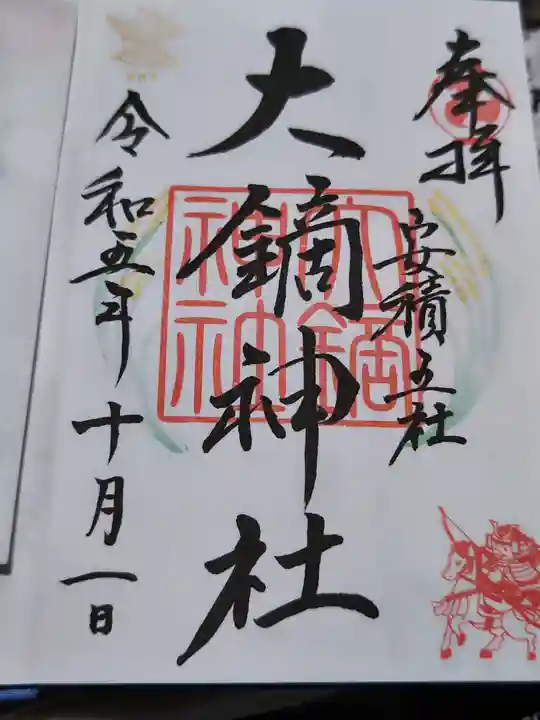 奉拝
安積五社
大鏑神社
大鏑神社
令和五年十月一日